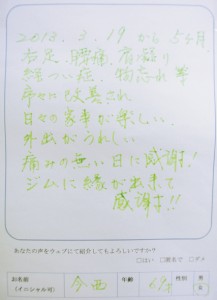 2013.2.19から5ヶ月
右足、腰痛、肩凝り
物忘れ等
年々に改善され
日々の家事が楽しい
外出がうれしい
痛みの無い日に感謝!
ジムに縁が出来て
感謝!!
あなたの声をウェブにて紹介してもよろしいですか?
□はい □匿名で □ダメ
お名前
(イニシャル可)
今西
年齢
69才
性別
男